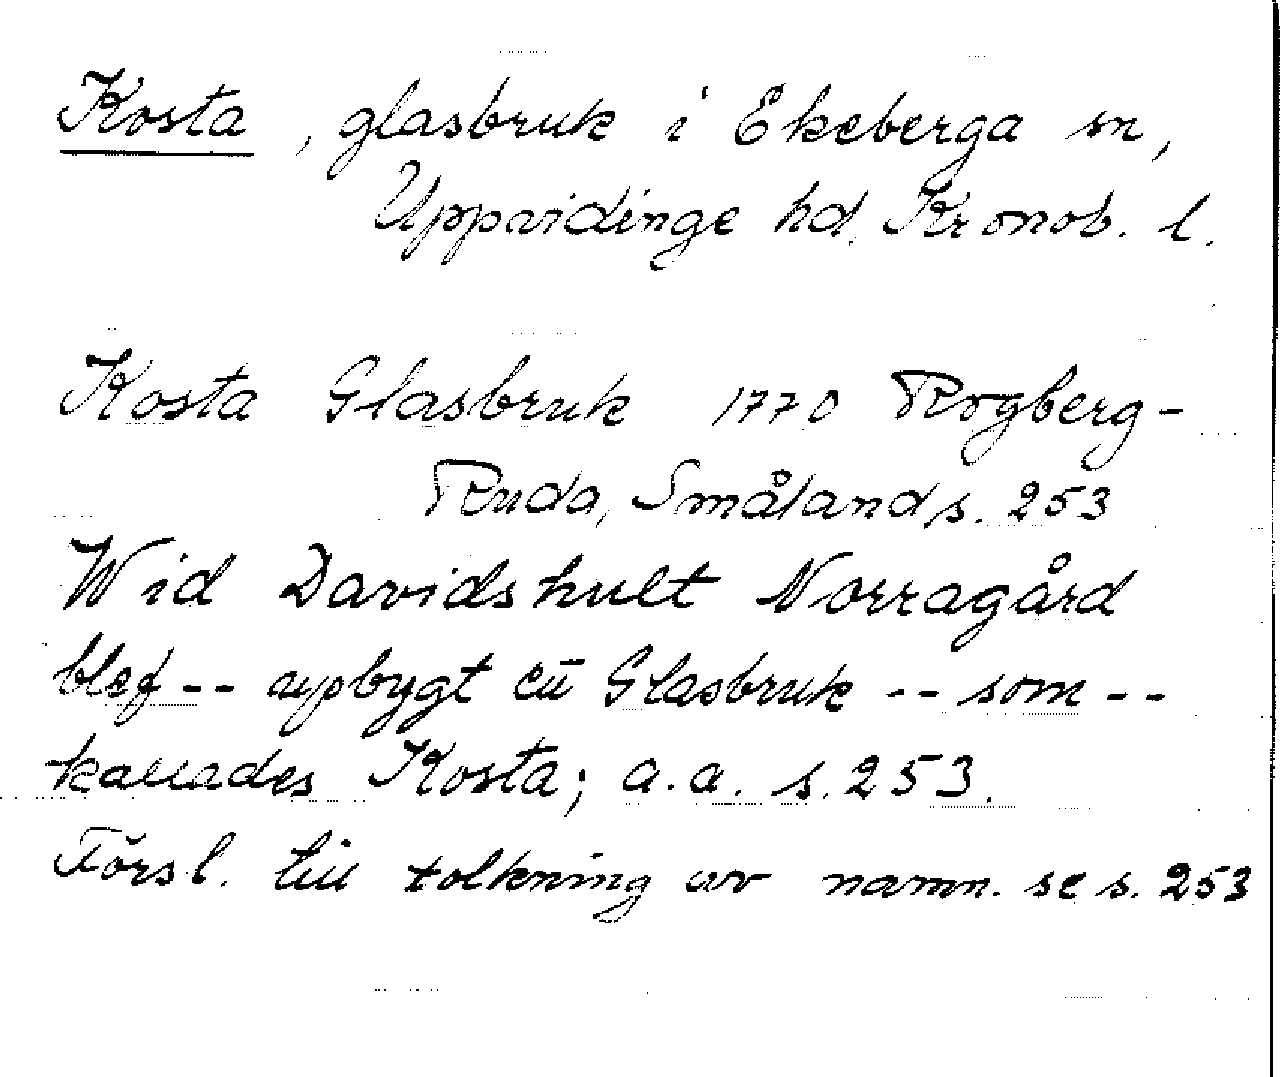 Kosta, glasbruk i Ekeberga sn,
Uppvidinge hd, Kronob. l.
Kosta Glasbruk 1770 Rogberg-
Ruda, Småland s. 253
Wid Davidshult Norragård
blef -- upbygt ett Glasbruk -- som --
kallades Kosta; a.a. s. 253.
Försl. till tolkning av namn. se s. 253